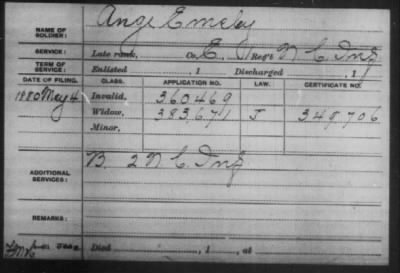 NAME OF SOLDIER: Ange Emeley
SERVICE: Late rank, Co. E, 1 Reg't N C Inf
TERM OF SERVICE: Enlisted , 1 Discharged , 1
DATE OF FILING. CLASS. APPLICATION NO. LAW. CERTIFICATE NO.
1880 May 4 Invalid, 360.469
Widow, 383,671 J 349,706
Minor,
ADDITIONAL SERVICES: B. 2 N C Inf
REMARKS:
Died , 1 , at